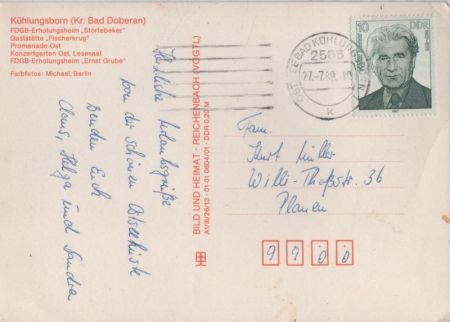 Kühlungsborn (Kr. Bad Doberan)
FDGB-Erholungsheim „Störtebeker"
Gaststätte „Fischerkrug"
Promenade Ost
Konzertgarten Ost, Lesesaal
FDGB-Erholungsheim „Ernst Grube"
Farbfotos: Michael, Berlin
Herzliche Urlaubsgrüße
von der schönen Ostseeküste
senden Euch
Claus, Helga und Sandra
BILD UND HEIMAT · REICHENBACH (VOGTL)
A1/B/26/13 · 01 01 0604/01 · DDR 0,20 M
OSTSEEBAD KÜHLUNGSBORN
2565
K
10
DDR
Fam.
Kurt Müller
Willi-
36
Plauen
9900